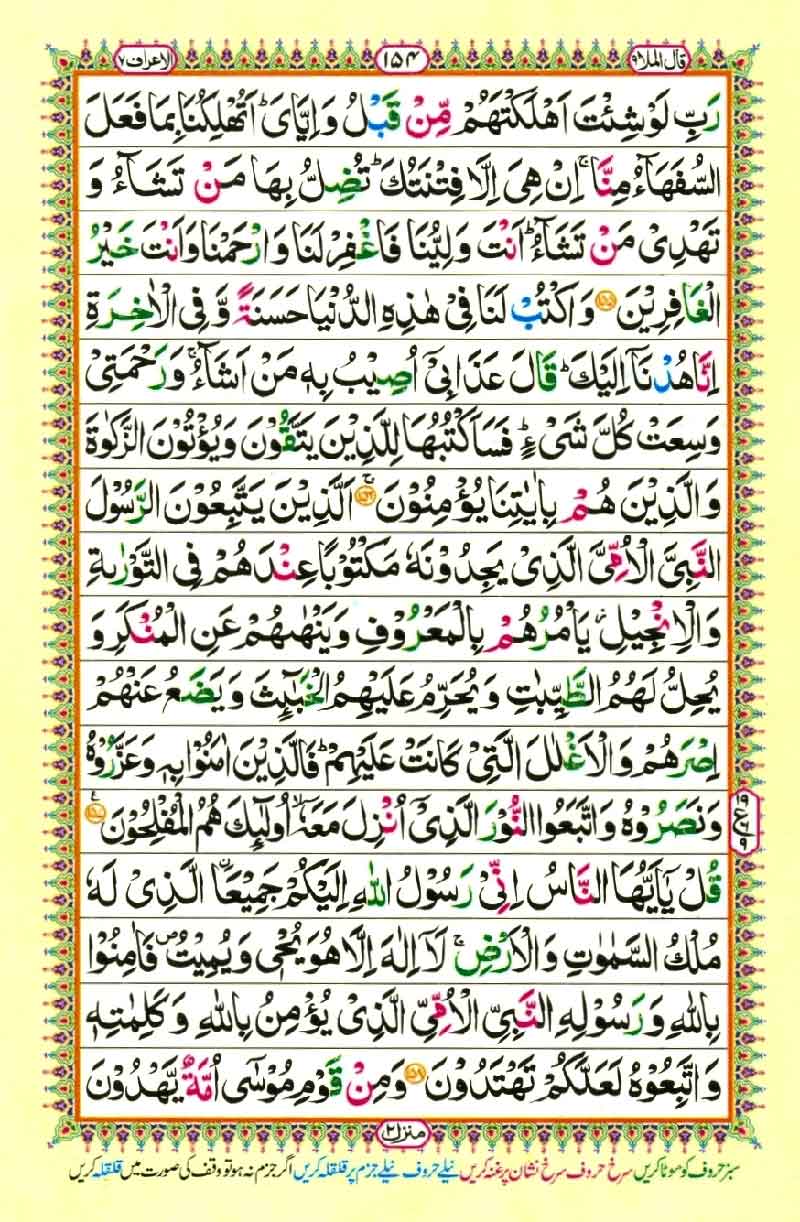 قال الملا ۹ ۱۵۴ الاعراف ۷
رَبِّ لَوْ شِئْتَ اَهْلَكْتَهُمْ مِّنْ قَبْلُ وَ اِیَّایَ ؕ اَتُهْلِكُنَا بِمَا فَعَلَ
السُّفَهَآءُ مِنَّا ۚ اِنْ هِیَ اِلَّا فِتْنَتُكَ ؕ تُضِلُّ بِهَا مَنْ تَشَآءُ وَ
تَهْدِیْ مَنْ تَشَآءُ ؕ اَنْتَ وَلِیُّنَا فَاغْفِرْ لَنَا وَ ارْحَمْنَا وَ اَنْتَ خَیْرُ
الْغَافِرِیْنَ ۝۱۵۵ وَ اكْتُبْ لَنَا فِیْ هٰذِهِ الدُّنْیَا حَسَنَةً وَّ فِی الْاٰخِرَةِ
اِنَّا هُدْنَاۤ اِلَیْكَ ؕ قَالَ عَذَابِیْۤ اُصِیْبُ بِهٖ مَنْ اَشَآءُ ۚ وَ رَحْمَتِیْ
وَسِعَتْ كُلَّ شَیْءٍ ؕ فَسَاَكْتُبُهَا لِلَّذِیْنَ یَتَّقُوْنَ وَ یُؤْتُوْنَ الزَّكٰوةَ
وَ الَّذِیْنَ هُمْ بِاٰیٰتِنَا یُؤْمِنُوْنَ ۝۱۵۶ۚ اَلَّذِیْنَ یَتَّبِعُوْنَ الرَّسُوْلَ
النَّبِیَّ الْاُمِّیَّ الَّذِیْ یَجِدُوْنَهٗ مَكْتُوْبًا عِنْدَهُمْ فِی التَّوْرٰىةِ
وَ الْاِنْجِیْلِ ؗ یَاْمُرُهُمْ بِالْمَعْرُوْفِ وَ یَنْهٰىهُمْ عَنِ الْمُنْكَرِ وَ
یُحِلُّ لَهُمُ الطَّیِّبٰتِ وَ یُحَرِّمُ عَلَیْهِمُ الْخَبٰٓىِٕثَ وَ یَضَعُ عَنْهُمْ
اِصْرَهُمْ وَ الْاَغْلٰلَ الَّتِیْ كَانَتْ عَلَیْهِمْ ؕ فَالَّذِیْنَ اٰمَنُوْا بِهٖ وَ عَزَّرُوْهُ
وَ نَصَرُوْهُ وَ اتَّبَعُوا النُّوْرَ الَّذِیْۤ اُنْزِلَ مَعَهٗۤ ۙ اُولٰٓىِٕكَ هُمُ الْمُفْلِحُوْنَ ۝۱۵۷۠
قُلْ یٰۤاَیُّهَا النَّاسُ اِنِّیْ رَسُوْلُ اللّٰهِ اِلَیْكُمْ جَمِیْعَاۨ الَّذِیْ لَهٗ
مُلْكُ السَّمٰوٰتِ وَ الْاَرْضِ ۚ لَاۤ اِلٰهَ اِلَّا هُوَ یُحْیٖ وَ یُمِیْتُ ۪ فَاٰمِنُوْا
بِاللّٰهِ وَ رَسُوْلِهِ النَّبِیِّ الْاُمِّیِّ الَّذِیْ یُؤْمِنُ بِاللّٰهِ وَ كَلِمٰتِهٖ
وَ اتَّبِعُوْهُ لَعَلَّكُمْ تَهْتَدُوْنَ ۝۱۵۸ وَ مِنْ قَوْمِ مُوْسٰۤى اُمَّةٌ یَّهْدُوْنَ
منزل ۲
سبز حروف کو موٹا کریں سرخ حروف سرخ نشان پر غنہ کریں نیلے حروف نیلے جزم پر قلقلہ کریں اگر جزم نہ ہو تو وقف کی صورت میں قلقلہ کریں